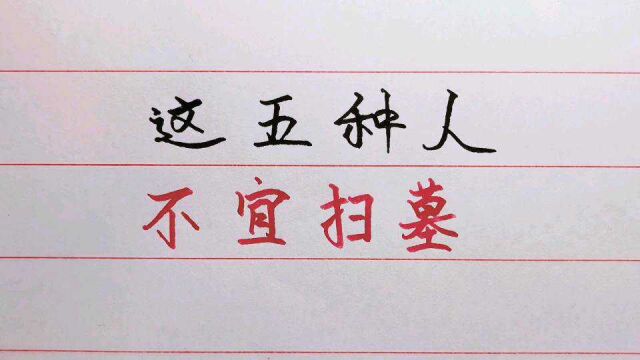 这五种人
不宜扫墓